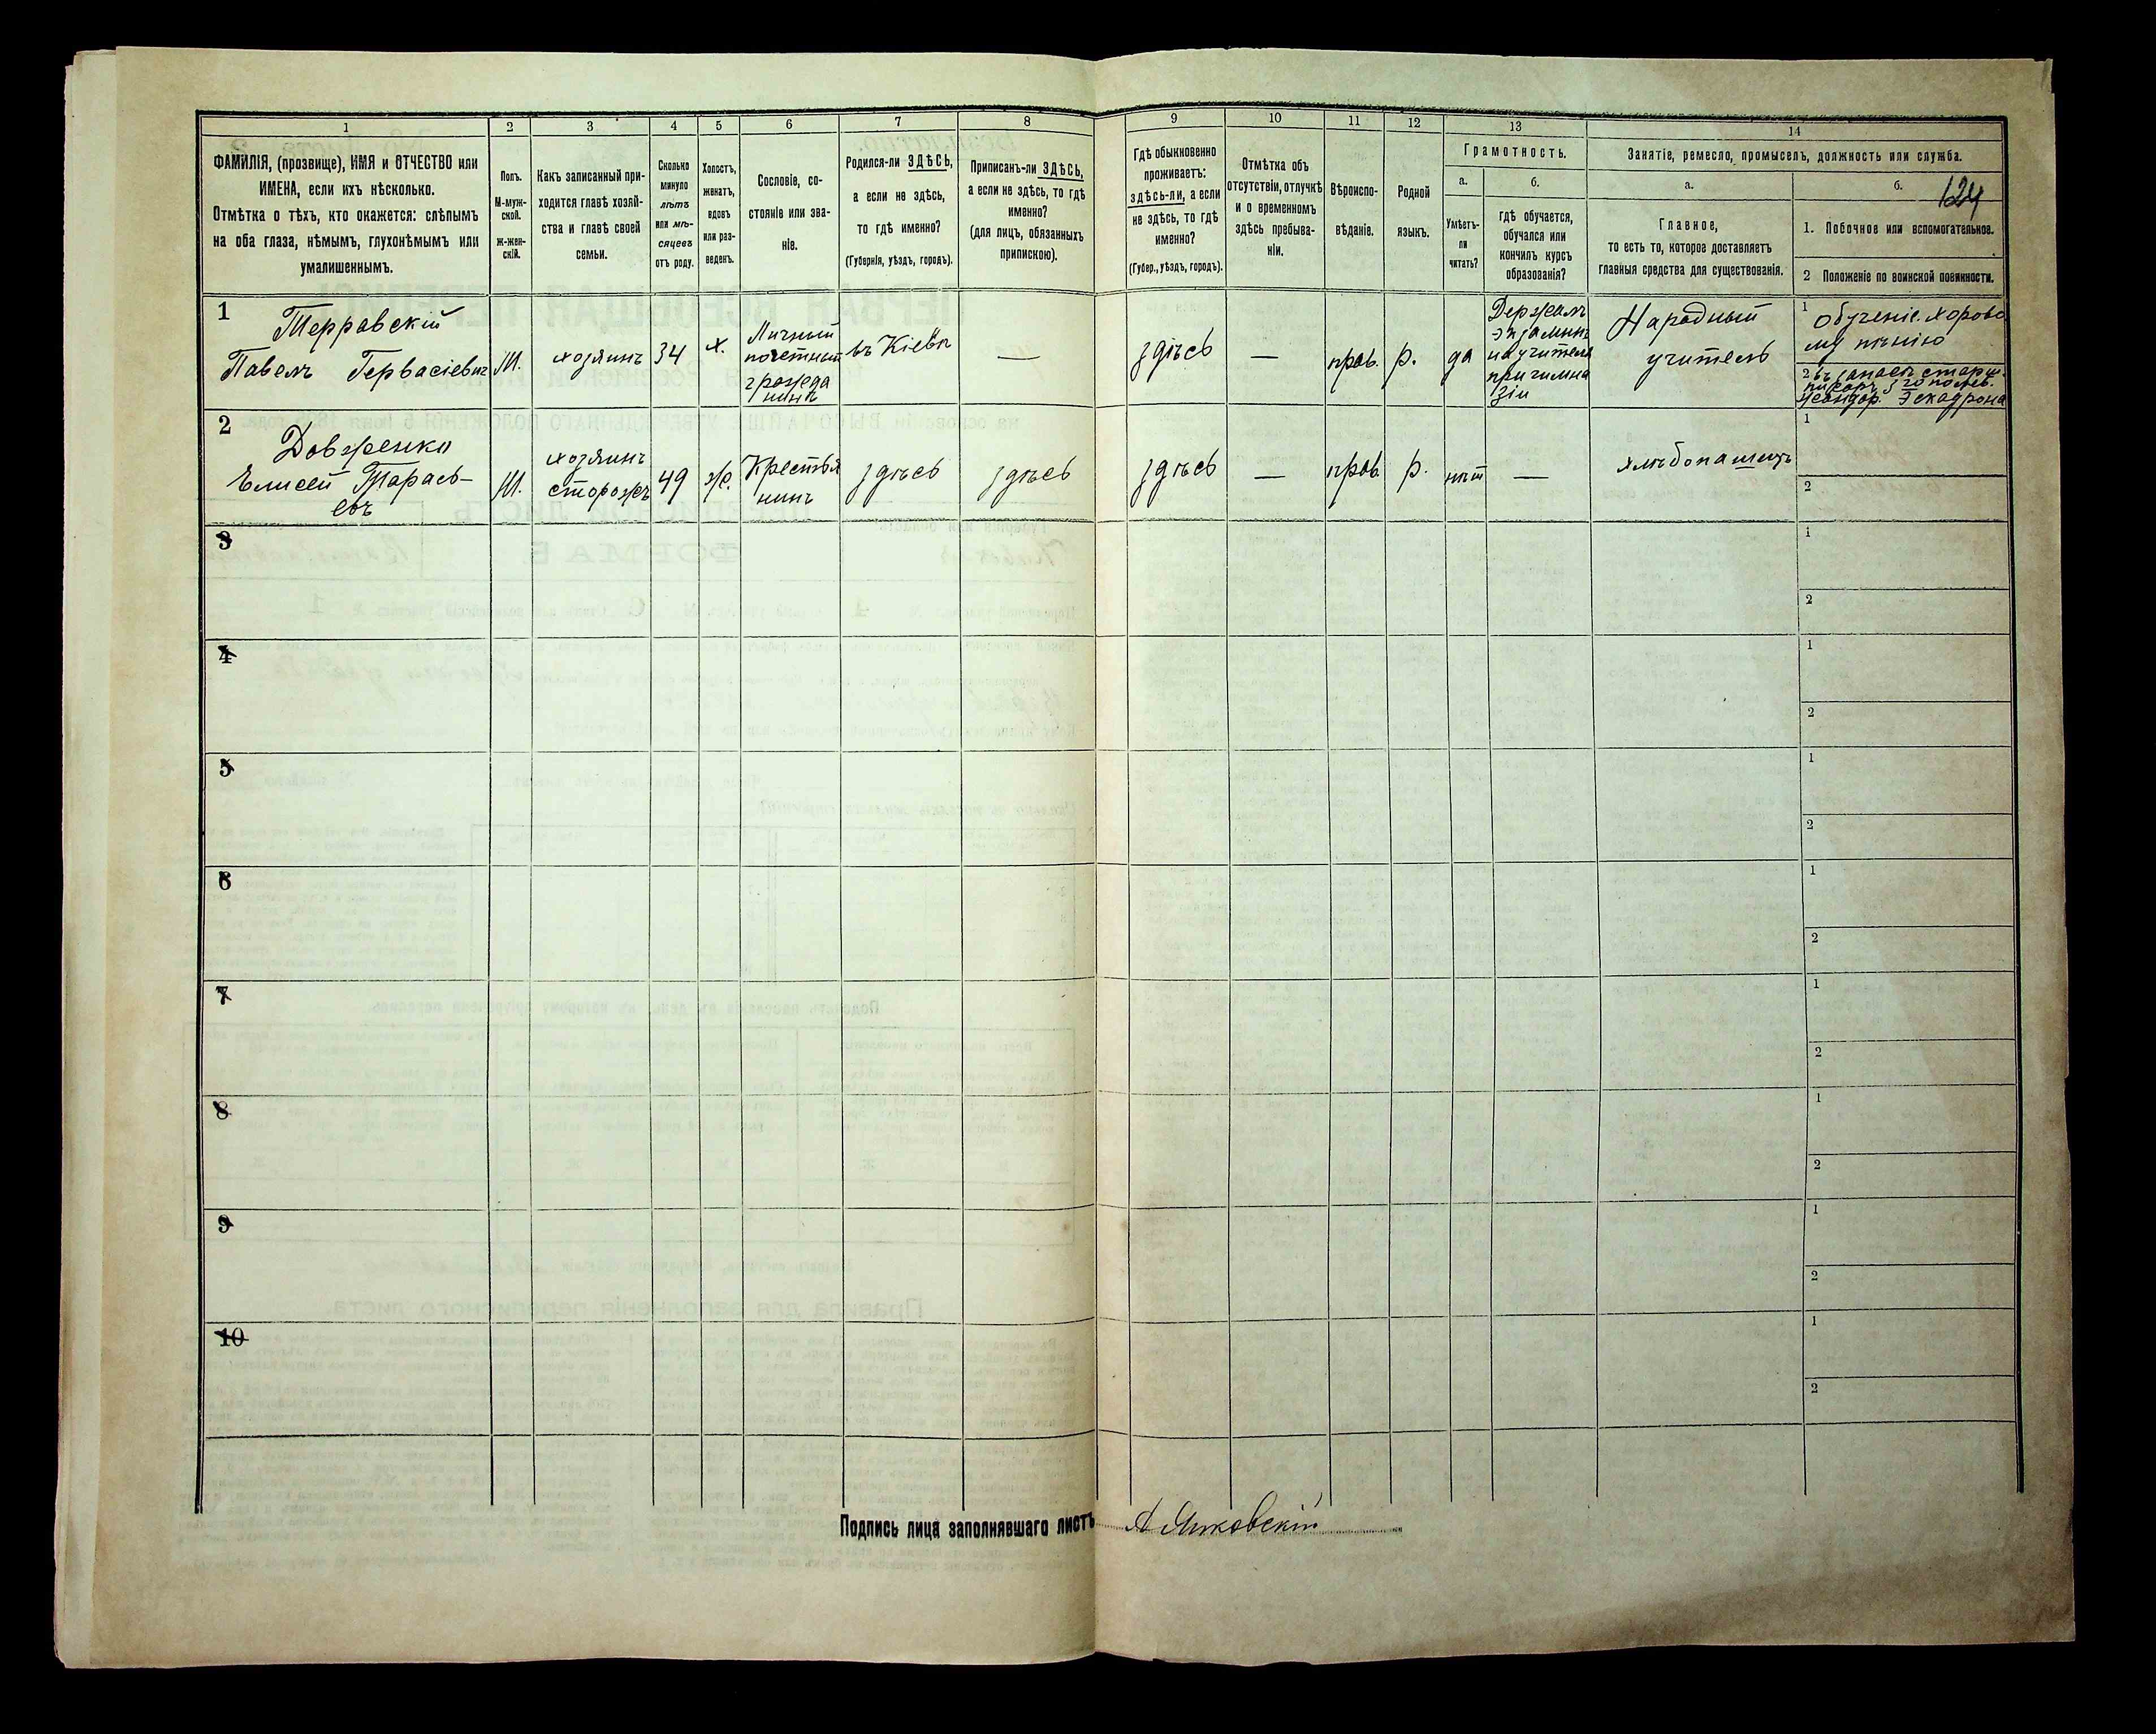 1 2 3 4 5 6 7 8 9 10 11 12 13 14
ФАМИЛІЯ, (прозвище), ИМЯ и ОТЧЕСТВО или
ИМЕНА, если ихъ нѣсколько.
Отмѣтка о тѣхъ, кто окажется: слѣпымъ
на оба глаза, нѣмымъ, глухонѣмымъ или
умалишеннымъ.
Полъ.
М-муж-
ской.
ж-жен-
скій.
Какъ записанный при-
ходится главѣ хозяй-
ства и главѣ своей
семьи.
Сколько
минуло
лѣтъ
или мѣ-
сяцевъ
отъ роду.
Холостъ,
женатъ,
вдовъ
или раз-
веденъ.
Сословіе, со-
стояніе или зва-
ніе.
Родился-ли ЗДѢСЬ,
а если не здѣсь,
то гдѣ именно?
(Губернія, уѣздъ, городъ).
Приписанъ-ли ЗДѢСЬ,
а если не здѣсь, то гдѣ
именно?
(для лицъ, обязанныхъ
припискою).
Гдѣ обыкновенно
проживаетъ:
здѣсь-ли, а если
не здѣсь, то гдѣ
именно?
(Губер., уѣздъ, городъ).
Отмѣтка объ
отсутствіи, отлучкѣ
и о временномъ
здѣсь пребыва-
ніи.
Вѣроиспо-
вѣданіе.
Родной
языкъ.
Грамотность.
а.
Умѣетъ-
ли
читать?
б.
гдѣ обучается,
обучался или
кончилъ курсъ
образованія?
Занятіе, ремесло, промыселъ, должность или служба.
а.
Главное,
то есть то, которое доставляетъ
главныя средства для существованія.
б.
124
1. Побочное или вспомогательное.
2 Положеніе по воинской повинности.
1
Терравскій
Павелъ Гервасіевич
М.
хозяинъ
34
х.
Личный
почетный
гражда
нинъ
въ Кіевѣ
—
здѣсь
—
прав.
р.
да
Держалъ
экзаминъ
на учителя
при гимна
зіи
Народный
учитель
1 Обученіе хорово
му пѣнію
2 въ запасѣ старш.
писарь 3го полев.
жандар. Эскадрона
2
Довженко
Елисей Тарась-
евъ
М.
хозяинъ
сторожъ
49
ж.
Крестья
нинъ
здѣсь
здѣсь
здѣсь
—
прав.
р.
нѣт
—
хлѣбопашецъ
1
2
3
1
2
4
1
2
5
1
2
6
1
2
7
1
2
8
1
2
9
1
2
10
1
2
Подпись лица заполнявшаго листъ